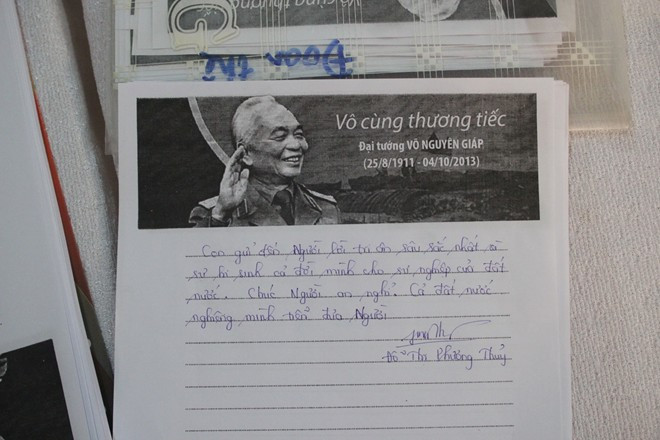 Đoàn thể
Vô cùng thương tiếc
Đại tướng VÕ NGUYÊN GIÁP
(25/8/1911 - 04/10/2013)
Con gửi đến Người lời tri ân sâu sắc nhất vì
sự hi sinh cả đời mình cho sự nghiệp của đất
nước. Chúc Người an nghỉ. Cả đất nước
nghiêng mình tiễn đưa Người
Đỗ Thị Phương Thuỷ